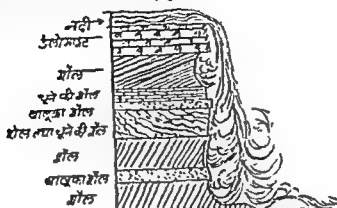 नदी
डेलोमाइट
शैल
चूने की शैल
बालुका शैल
शैल तथा चूने की शैल
शैल
बालुका शैल
शैल